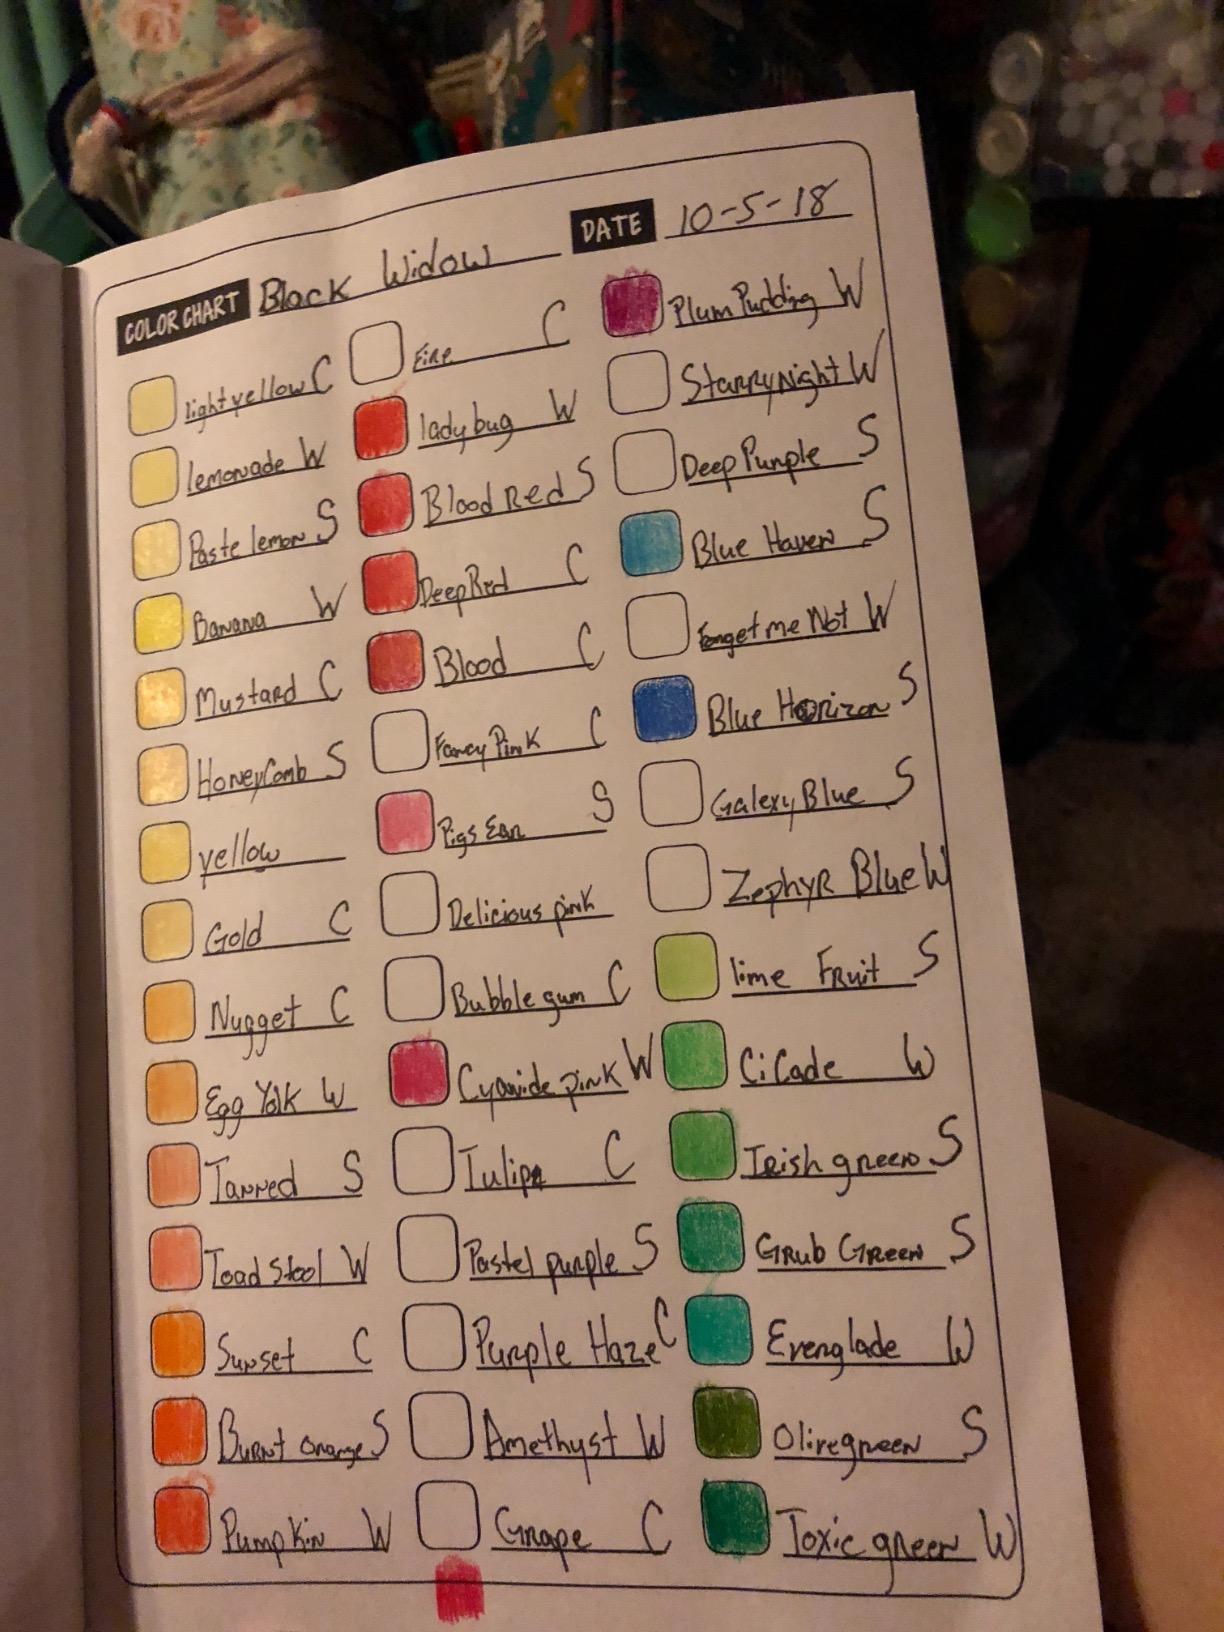 COLOR CHART Black Widow DATE 10-5-18
light yellow C
lemonade W
Paste lemon S
Banana W
Mustard C
HoneyComb S
yellow
Gold C
Nugget C
Egg Yolk W
Tanned S
Toad Stool W
Sunset C
Burnt orange S
Pumpkin W
Fire C
lady bug W
Blood Red S
Deep Red C
Blood C
Fancy Pink C
Pigs Ear S
Delicious pink
Bubble gum C
Cyanide pink W
Tulip C
Pastel purple S
Purple Haze C
Amethyst W
Grape C
Plum Pudding W
Starry Night W
Deep Purple S
Blue Haven S
Forget me Not W
Blue Horizon S
Galexy Blue S
Zephyr Blue W
lime Fruit S
CiCade W
Irish green S
Grub Green S
Everglade W
Olivegreen S
Toxic green W